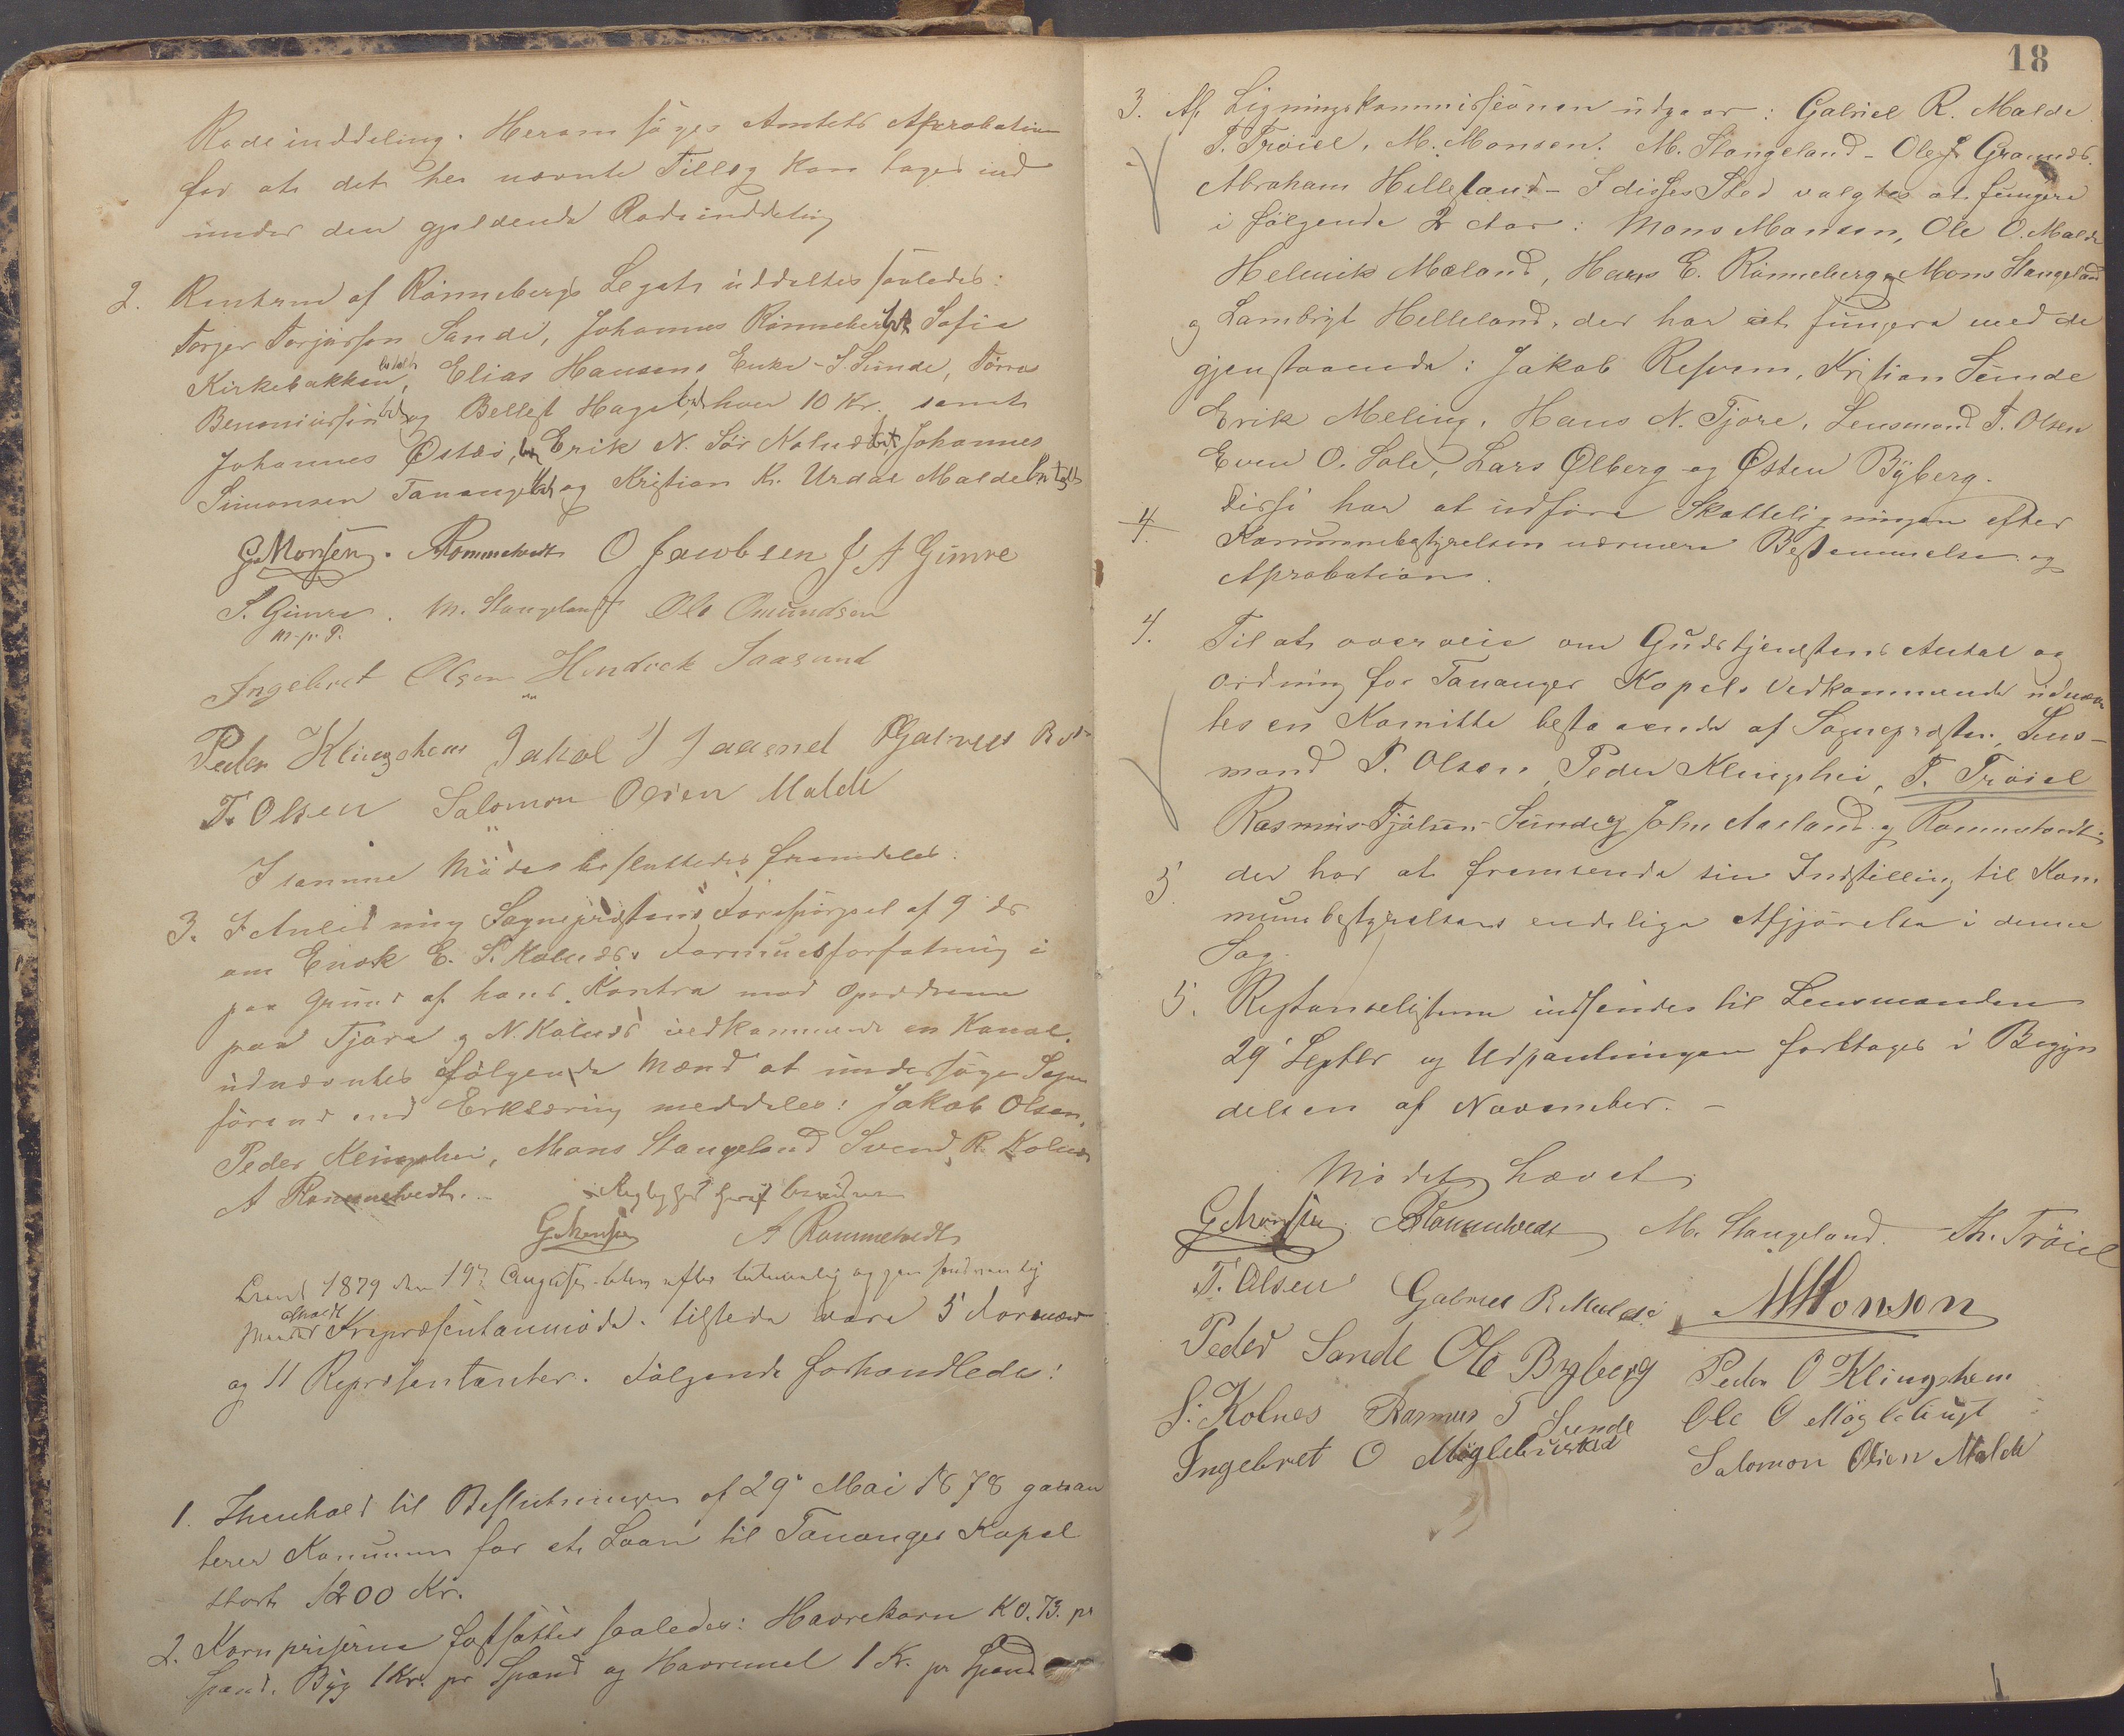 Rodeinddeling. Herom söges Amtets Approbation
for at det her nævnte Tillæg kan tages ind
under den gjeldende Rodeinddeling
2. Renterne af Rönnebergs Legat uddeltes saaledes:
Torger Torjörsen Sande, Johannes Rönneberg Sofie
Kirkebakken, Elias Hansens Enke - S. Sunde, Törres
og Bellest Haga, hver 10 Kr. samt
Johannes Erik N. Sör Kolnes Johannes
Simonsen Tananger og Kristian K. Urdal Malde betalt
G Monsen. Rommetvedt O Jacobsen J A Gimre
S. Gimre. M. Stangeland Ole Omundsen
m. p. P.
Ingebret Olsen Hendrek Jaasund
Peder Klingshem Jakob J Jaasund Gabriel
T. Olsen Salomon Olsen Malde
I samme Möde besluttedes fremdeles:
3. I Anledning Sogneprestens Forespörgsel af 9 ds
om Enok E. S. Kolnes's Formuesforfatning i
paa Grund af hans Kontra mod Opsidderne
paa Tjora og N. Kolnes vedkommende en Kanal,
udnævntes fölgende Mænd at undersöge Sagen
förend Erklæring meddeles: Jakob Olsen,
Peder Klingshei, Mons Stangeland Svend R. Kolnes
A Rommetvedt.
G Monsen A Rommetvedt
1879 den 19de August blev efter
Representantmöde. tilstede vare 5 Formænd
og 11 Representanter. Fölgende forhandledes:
1. I Henhold til Beslutningen af 29 Mai 1878 garan
terer Kommunen for et Laan til Tananger Kapel
stort 1200 Kr.
2. Kornpriserne fastsattes saaledes: Havrekorn K 0.73. pr
Spand. Byg 1 Kr. pr Spand og Havremel 1 Kr. pr Spand
18
3. Af Ligningskommissionen udgaar: Gabriel R. Malde
T. Tröiel, M. Monsen. M. Stangeland - Ole
Abraham Helleland - I disses Sted valgtes at fungere
i fölgende 2 Aar: Mons Monsen, Ole O. Malde
Helmik Mæland, Hans E. Rönneberg Mons Stangeland
og Lambrigt Helleland, der har at fungere med de
gjenstaaende: Jakob Refsnes, Kristian Sunde
Erik Meling, Hans N. Tjore, Lensmand T. Olsen
Even O. Sole, Lars Ølberg og Østen Byberg.
4. Disse har at udföre Skatteligningen efter
Kommunebestyrelsen nærmere Bestemmelse og
Aprobation.
4. Til at overveie om Gudstjenestens Antal og
Ordning for Tananger Kapels Vedkommende udnævn
tes en Komitte bestaaende af Sognepresten, Lens-
mand T. Olsen, Peder Klingshei, T. Tröiel
Rasmus Tjölsen Sunde og John Aarland og Rommetvedt
5. der har at fremsende sin Indstilling til Kom
munebestyrelsens endelige Afgjörelse i denne
Sag.
5. Restanselisterne indsendes til Lensmanden
29 Septbr og Udpantningen foretages i Begyn
delsen af November. -
Mödet hævet
G Monsen. Rommetvedt M. Stangeland. Th. Tröiel
T. Olsen Gabriel R Malde M Monson
Peder Sande Ole Byberg Peder O Klingshem
S. Kolnes Rasmus T Sunde Ole O
Ingebret O Möglebustad Salomon Olsen Malde